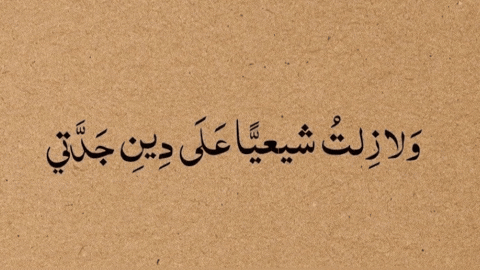 وَلا زِلتُ شيعيًّا عَلَى دِينِ جَدَّتي